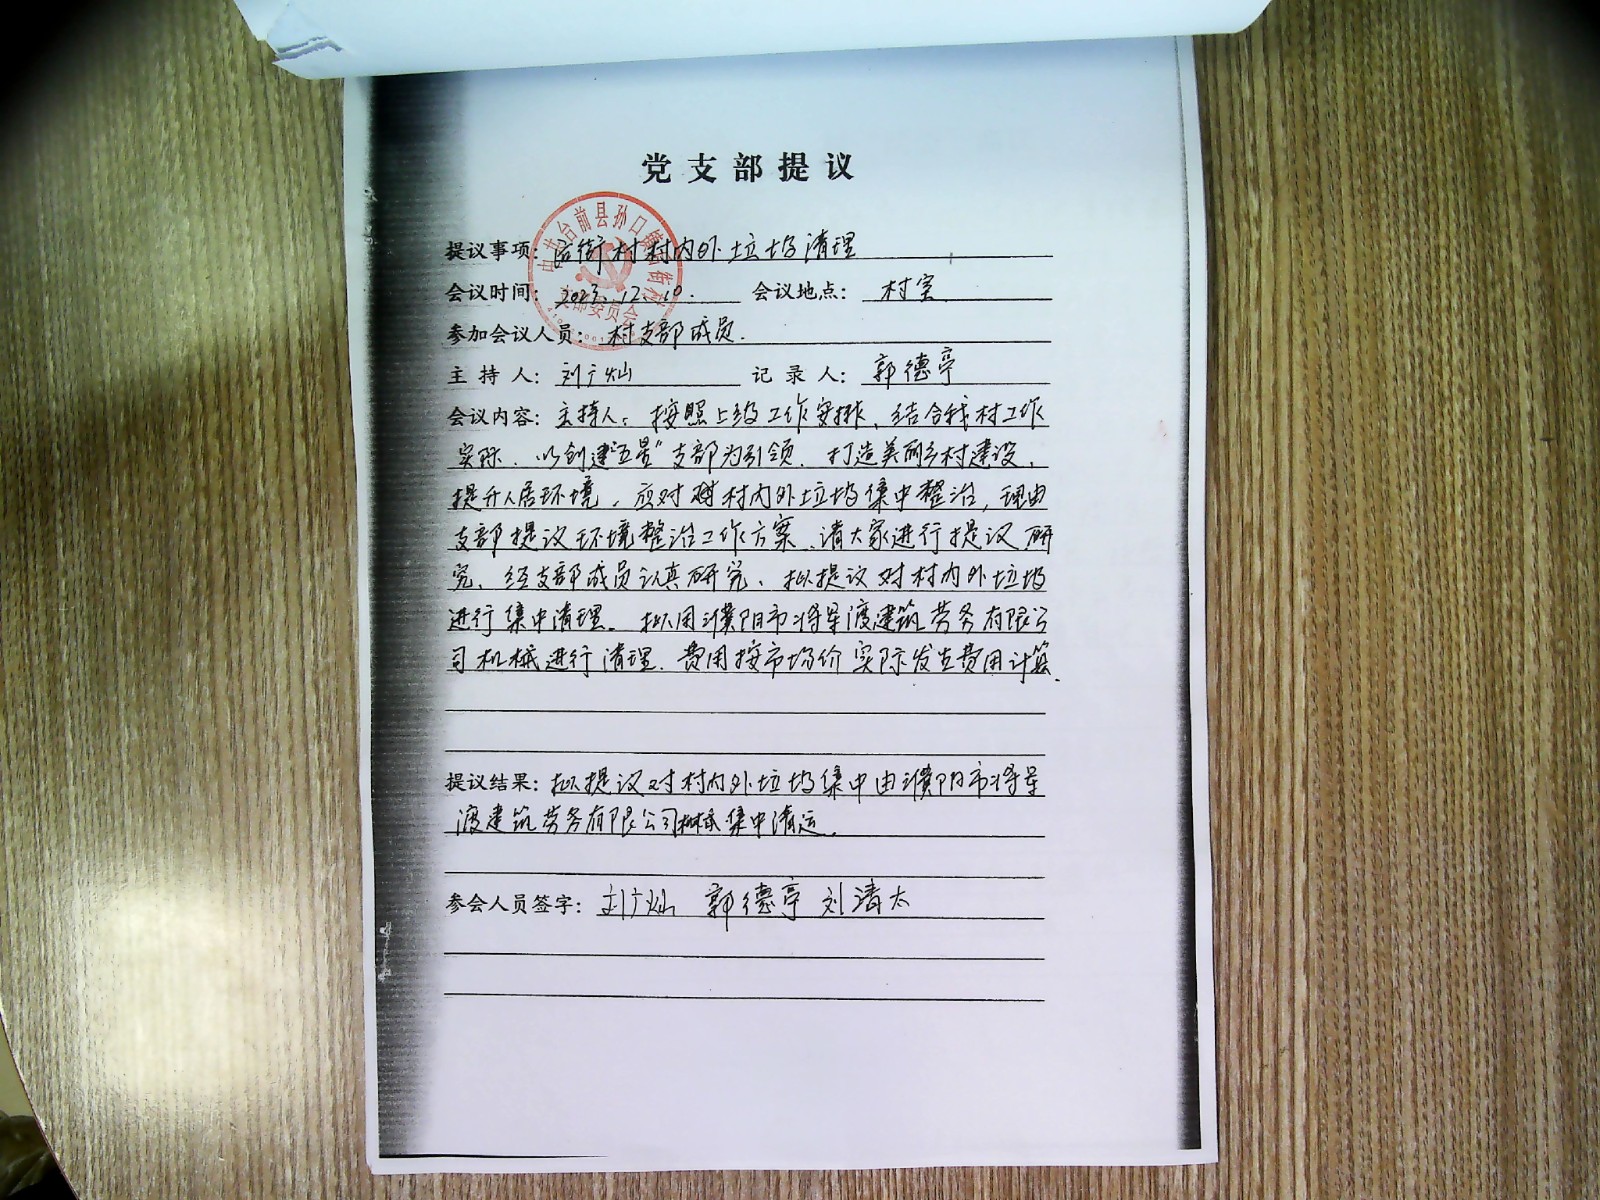 党支部提议
提议事项：后街村村内外垃圾清理
会议时间：2023.12.10. 会议地点：村室
参加会议人员：村支部成员.
主持人：刘广灿 记录人：郭德亭
会议内容：主持人：按照上级工作安排，结合我村工作
实际、以创建“五星”支部为引领、打造美丽乡村建设、
提升人居环境，应对对村内外垃圾集中整治，现由
支部提议环境整治工作方案、请大家进行提议研
究、经支部成员认真研究、拟提议对村内外垃圾
进行集中清理。拟用濮阳市将军渡建筑劳务有限公
司机械进行清理、费用按市场价实际发生费用计算.
提议结果：拟提议对村内外垃圾集中由濮阳市将军
渡建筑劳务有限公司机械集中清运.
参会人员签字：刘广灿 郭德亭 刘清太
中共台前县孙口镇后街村
支部委员会